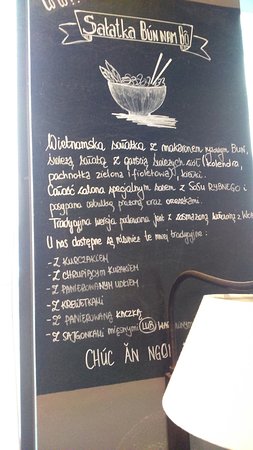 Sałatka BÚN NAM BÒ
Wietnamska sałatka z makaronem ryżowym BUN,
świeżą sałatą z garścią świeżych ziół (kolendra,
pachnotka zielona i fioletowa), kiełki.
Całość zalana specjalnym sosem z SOSU RYBNEGO i
posypana cebulką prażoną oraz orzeszkami.
Tradycyjna wersja podawana jest z smażoną wołowiną z
U nas dostępne są również te mniej tradycyjne:
-Z KURCZAKIEM
-Z CHRUPIĄCYM KURAKIEM
-Z PANIEROWANYM UDKIEM
-Z KREWETKAMI
-Z PANIEROWANĄ KACZKĄ
-Z SAJGONKAMI MIĘSNYMI LUB
CHÚC ĂN NGON